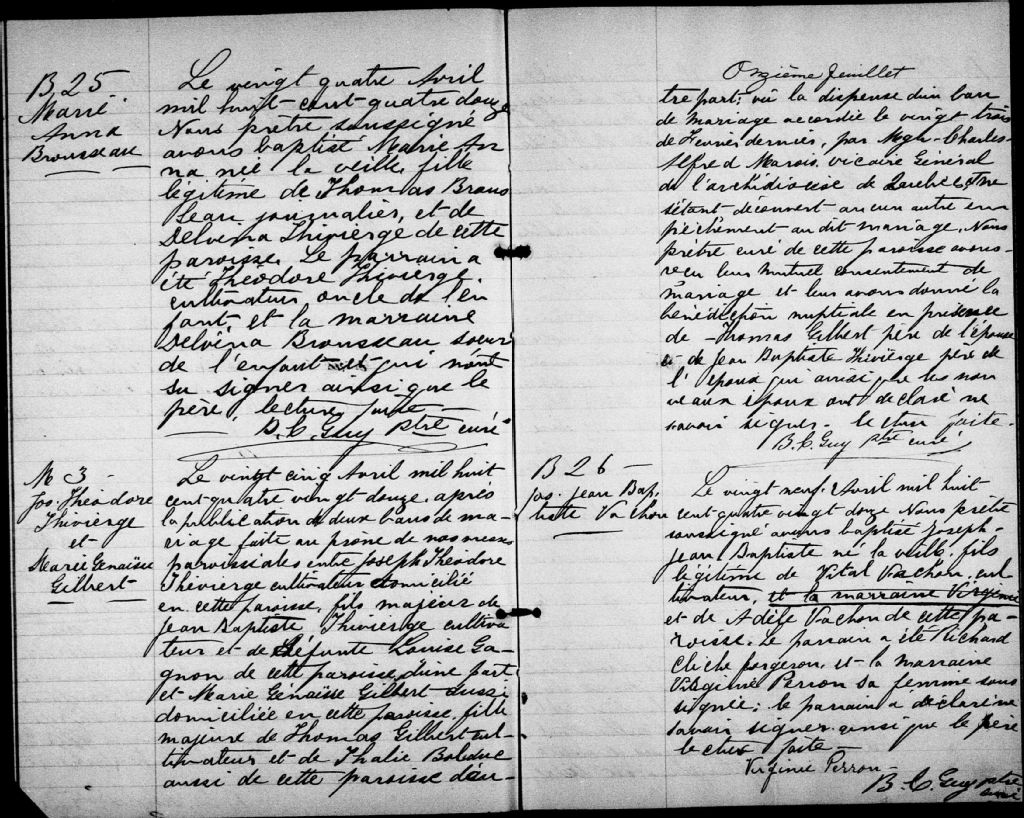 B. 25
Marie
Anna
Brousseau
Le vingt quatre Avril
mil huit-cent-quatre douze
Nous prêtre soussigné
avons baptisé Marie An
na née la veille, fille
légitime de Thomas Brous
seau journalier, et de
Delvina Thivierge de cette
paroisse. Le parrain a
été Théodore Thivierge,
cultivateur, oncle de l'en
fant, et la marraine
Delvina Brousseau soeur
de l'enfant et qui n'ont
su signer ainsi que le
père. lecture faite
B. C. Guy ptre curé
M 3 -
Jos. Théodore
Thivierge
et
Marie Genaïsse
Gilbert
Le vingt cinq Avril mil huit
cent quatre vingt douze, après
la publication de deux bans de ma-
riage faite au prône de nos messes
paroissiales entre Joseph Théodore
Thivierge cultivateur domicilié
en cette paroisse, fils majeur de
Jean Baptiste Thivierge cultiva
teur et de défunte Louise Ga-
gnon de cette paroisse d'une part
et Marie Génaïsse Gilbert aussi
domiciliée en cette paroisse, fille
majeure de Thomas Gilbert cul-
tivateur et de Thalie Bolduc
aussi de cette paroisse d'au-
Onzième feuillet
tre part; vu la dispense d'un ban
de mariage accordée le vingt trois
de Février dernier, par Mgr Charles-
Alfred Marois, vicaire Général
de l'archidiocèse de Québec, et ne
s'étant découvert aucun autre em
pêchement au dit mariage, Nous
prêtre curé de cette paroisse avons
reçu leur mutuel consentement de
mariage et leur avons donné la
bénédiction nuptiale en présence
de Thomas Gilbert père de l'épouse
et de Jean Baptiste Thivierge père de
l'époux qui ainsi que les nou
veaux époux ont déclaré ne
savoir signer. lecture faite.
B. C. Guy ptre curé
B 26 -
Jos. Jean Bap.
tiste Vachon
Le vingt neuf Avril mil huit
cent quatre vingt douze Nous prêtre
soussigné avons baptisé Joseph-
Jean Baptiste né la veille, fils
légitime de Vital Vachon, cul
tivateur, et la marraine Virginie
et de Adèle Vachon de cette pa-
roisse. Le parrain a été Richard
Cliche forgeron, et la marraine
Virginie Perron sa femme sous
signée; le parrain a déclaré ne
savoir signer ainsi que le père
lecture faite -
Virginie Perron -
B. C. Guy ptre
curé